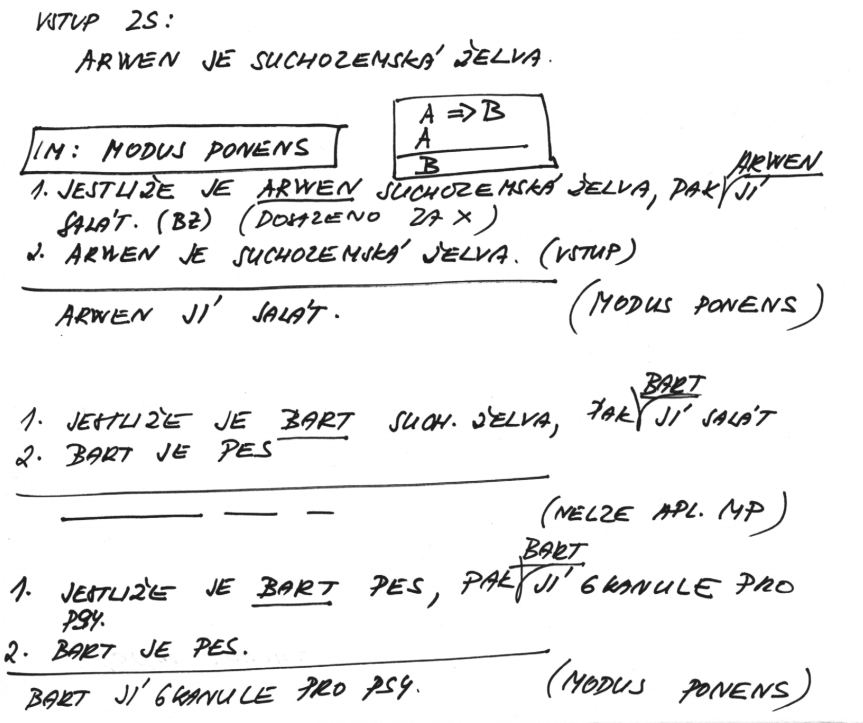 VSTUP ZS:
ARWEN JE SUCHOZEMSKÁ ŽELVA.
A => B
A
B
IM: MODUS PONENS
ARWEN
1. JESTLIŽE JE ARWEN SUCHOZEMSKÁ ŽELVA, PAK JÍ
SALÁT. (BZ) (DOSAZENO ZA X)
2. ARWEN JE SUCHOZEMSKÁ ŽELVA. (VSTUP)
ARWEN JÍ SALÁT. (MODUS PONENS)
BART
1. JESTLIŽE JE BART SUCH. ŽELVA, PAK JÍ SALÁT
2. BART JE PES
(NELZE APL. MP)
BART
1. JESTLIŽE JE BART PES, PAK JÍ GRANULE PRO
PSY.
2. BART JE PES.
BART JÍ GRANULE PRO PSY. (MODUS PONENS)